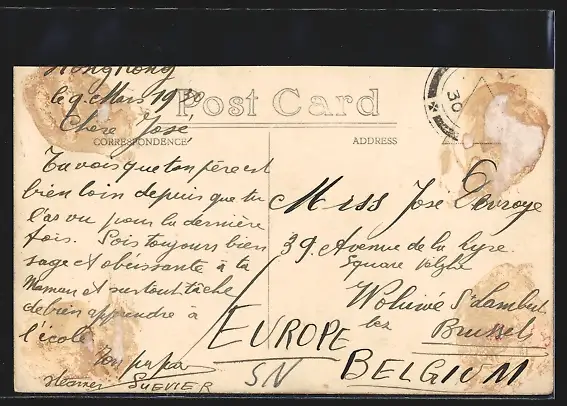 HongKong
le 9. Mars 1930
Post Card
Chère José,
CORRESPONDENCE
ADDRESS
Tu vois que ton père est
bien loin depuis que tu
l'as vu pour la dernière
fois. Sois toujours bien
sage et obéissante à ta
Maman et surtout tâche
de bien apprendre à
l'école
Ton papa
steamer
Miss José Devroye
39. Avenue de la Lyre
Square
Woluwé St Lambert
lez Brussels
EUROPE
BELGIUM
SN
30